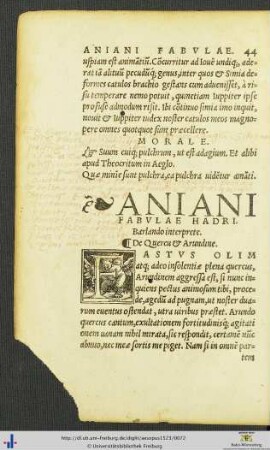 ANIANI FABVLAE. 44
uspiam est animātiū. Cōcurritur ad Iouē undiq;, ade
rat tā alituū pecudūq; genus, inter quos & Simia de
formes catulos brachio gestans cum aduenisset, à ri
su temperare nemo potuit, quinetiam Iuppiter ipse
profuse admodum risit. Ibi cōtinuo simia imo inquit,
nouit & Iuppiter iudex noster catulos meos magno
pere omnes quotquot sunt præcellere.
MORALE.
Suum cuiq; pulchrum, ut est adagium. Et alibi
apud Theocritum in Aeglo.
Quæ minime sunt pulchra, ea pulchra uidētur amāti.
ANIANI
FABVLAE HADRI.
Barlando interprete.
¶ De Quercu & Arundine.
FASTVS OLIM
atq; adeo insolentiæ plena quercus,
Arundinem aggressa est, si nunc in
quiens pectus animosum tibi, proce
de, agedū ad pugnam, ut noster dua
rum euentus ostendat, utra uiribus præstet. Arundo
quercus tantum, exultationem fortitudinisq; agitati
onem uanam nihil mirata, sic respondit, certamē nūc
abnuo, nec meæ sortis me piget. Nam si in omnē par
tem
http://dl.ub.uni-freiburg.de/diglit/aesopus1523/0072
© Universitätsbibliothek Freiburg